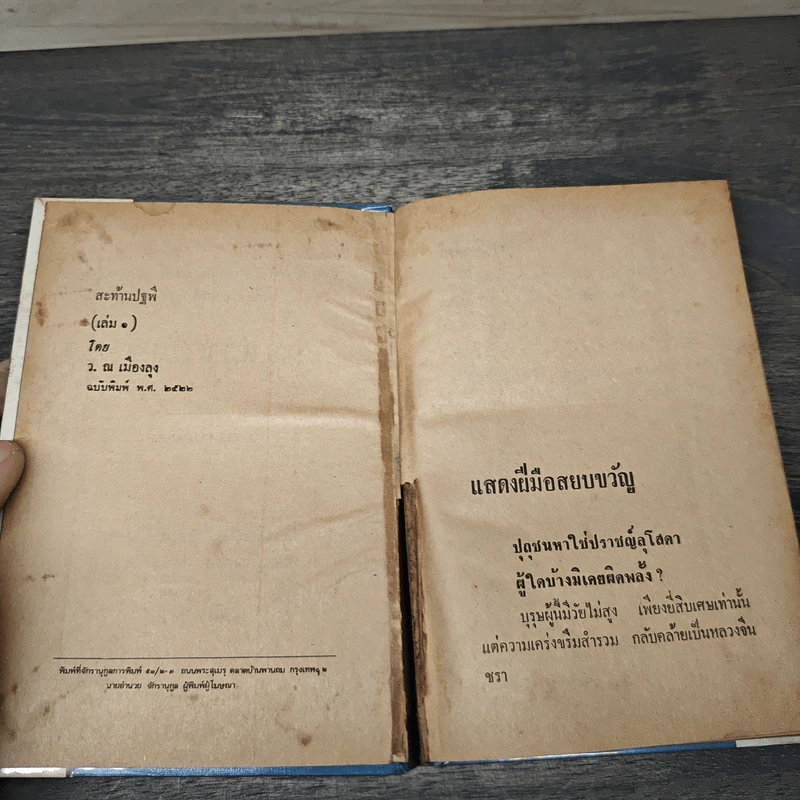 สะท้านปฐพี
(เล่ม ๑)
โดย
ว. ณ เมืองลุง
ฉบับพิมพ์ พ.ศ. ๒๕๒๒
พิมพ์ที่จักรานุกูลการพิมพ์ ๕๑/๒-๓ ถนนพระสุเมรุ ตลาดบ้านพานถม กรุงเทพฯ ๒
นายอำนวย จักรานุกูล ผู้พิมพ์ผู้โฆษณา
แสดงฝีมือสยบขวัญ
ปุถุชนหาใช่ปราชญ์ลุโสดา
ผู้ใดบ้างมิเคยผิดพลั้ง ?
บุรุษผู้นี้มีวัยไม่สูง เพียงยี่สิบเศษเท่านั้น
แต่ความเคร่งขรึมสำรวม กลับคล้ายเป็นหลวงจีน
ชรา